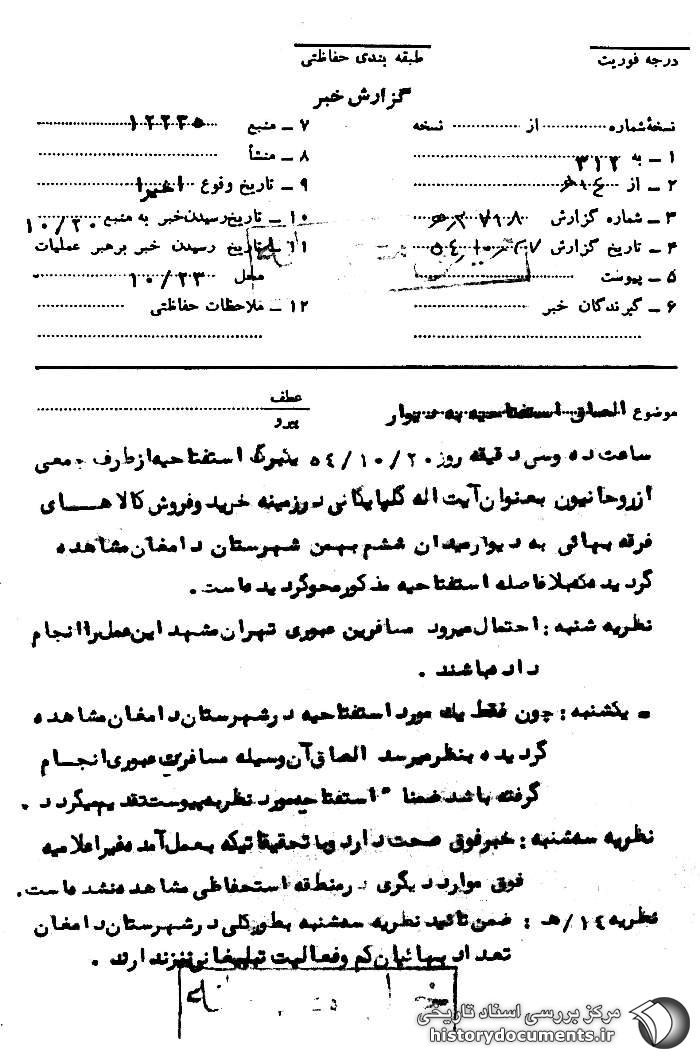 طبقه بندی حفاظتی
درجه فوریت
گزارش خبر
نسخهٔ شماره ............ از ............ نسخه
۱ ــ به ۳۱۲
۲ ــ از
۳ ــ شماره گزارش
۴ ــ تاریخ گزارش
۵ ــ پیوست
۶ ــ گیرندگان خبر
۷ ــ منبع ۱۲۲۳۵
۸ ــ منشأ
۹ ــ تاریخ وقوع اخیرا
۱۰ ــ تاریخ رسیدن خبر به منبع ۱۰/۲۰
۱۱ ــ تاریخ رسیدن خبر برهبر عملیات
محل ۱۰/۲۳
۱۲ ــ ملاحظات حفاظتی
عطف
پیرو
موضوع الصاق استفتاحیه به دیوار
ساعت ده وسی دقیقه روز ۵۴/۱۰/۲۰ یکبرگ استفتاحیه از طرف جمعی
از روحانیون بعنوان آیت اله گلپایگانی در زمینه خرید و فروش کالاهــای
فرقه بهائی به دیوار میدان ششم بهمن شهرستان دامغان مشاهده
گردیده که بلافاصله استفتاحیه مذکور محو گردیده است .
نظریه شنبه : احتمال میرود مسافرین عبوری تهران مشهد این عمل را انجام
داده باشند .
ــ یکشنبه : چون فقط یک مورد استفتاحیه در شهرستان دامغان مشاهده
گردیده بنظر میرسد الصاق آن وسیله مسافرین عبوری انجــام
گرفته باشد ضمنا " استفتاحیه مورد نظر به پیوست تقدیم میگردد .
نظریه سه شنبه : خبر فوق صحت دارد و با تحقیقاتیکه بعمل آمد بغیر اعلامیه
فوق موارد دیگری در منطقه استحفاظی مشاهده نشده است .
نظریه ۱۴/هـ : ضمن تائید نظریه سه شنبه بطور کلی در شهرستان دامغان
تعداد بهائیان کم و فعالیت تبلیغاتی نیز ندارند .
مرکز بررسی اسناد تاریخی
historydocuments.ir